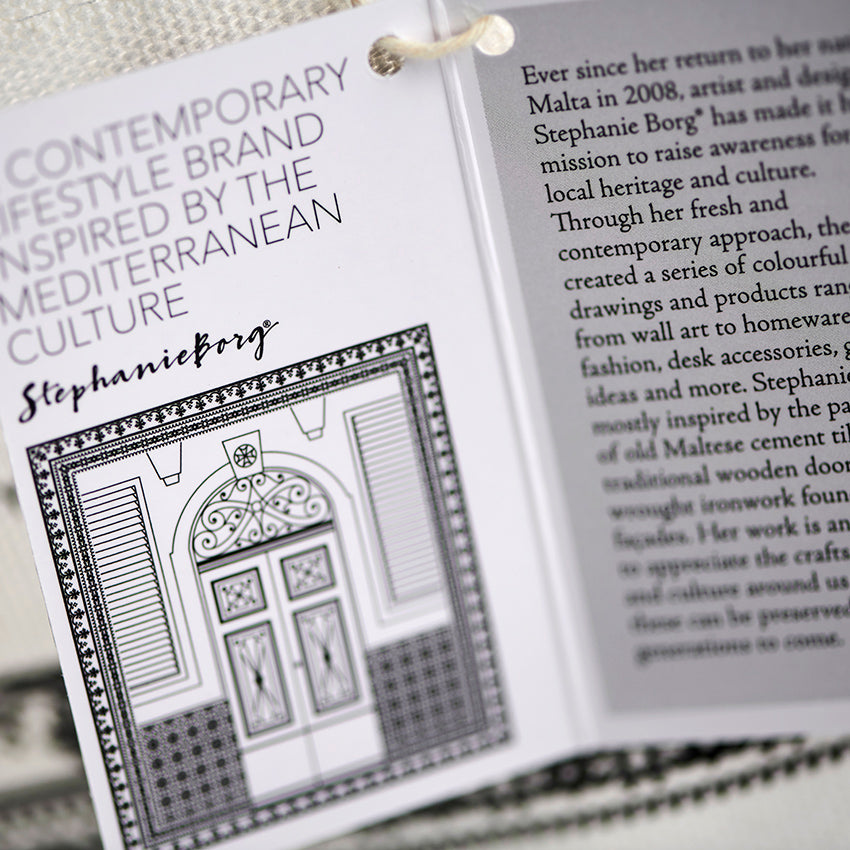 CONTEMPORARY
LIFESTYLE BRAND
INSPIRED BY THE
MEDITERRANEAN
CULTURE
StephanieBorg®
Ever since her return to her
Malta in 2008, artist and
Stephanie Borg® has made it
mission to raise awareness for
local heritage and culture.
Through her fresh and
contemporary approach, the
created a series of colourful
drawings and products
from wall art to homeware
fashion, desk accessories,
ideas and more. Stephanie
mostly inspired by the
of old Maltese cement
traditional wooden
wrought ironwork
façades. Her work is an
to appreciate the
and culture around us
these can be preserved
generations to come.